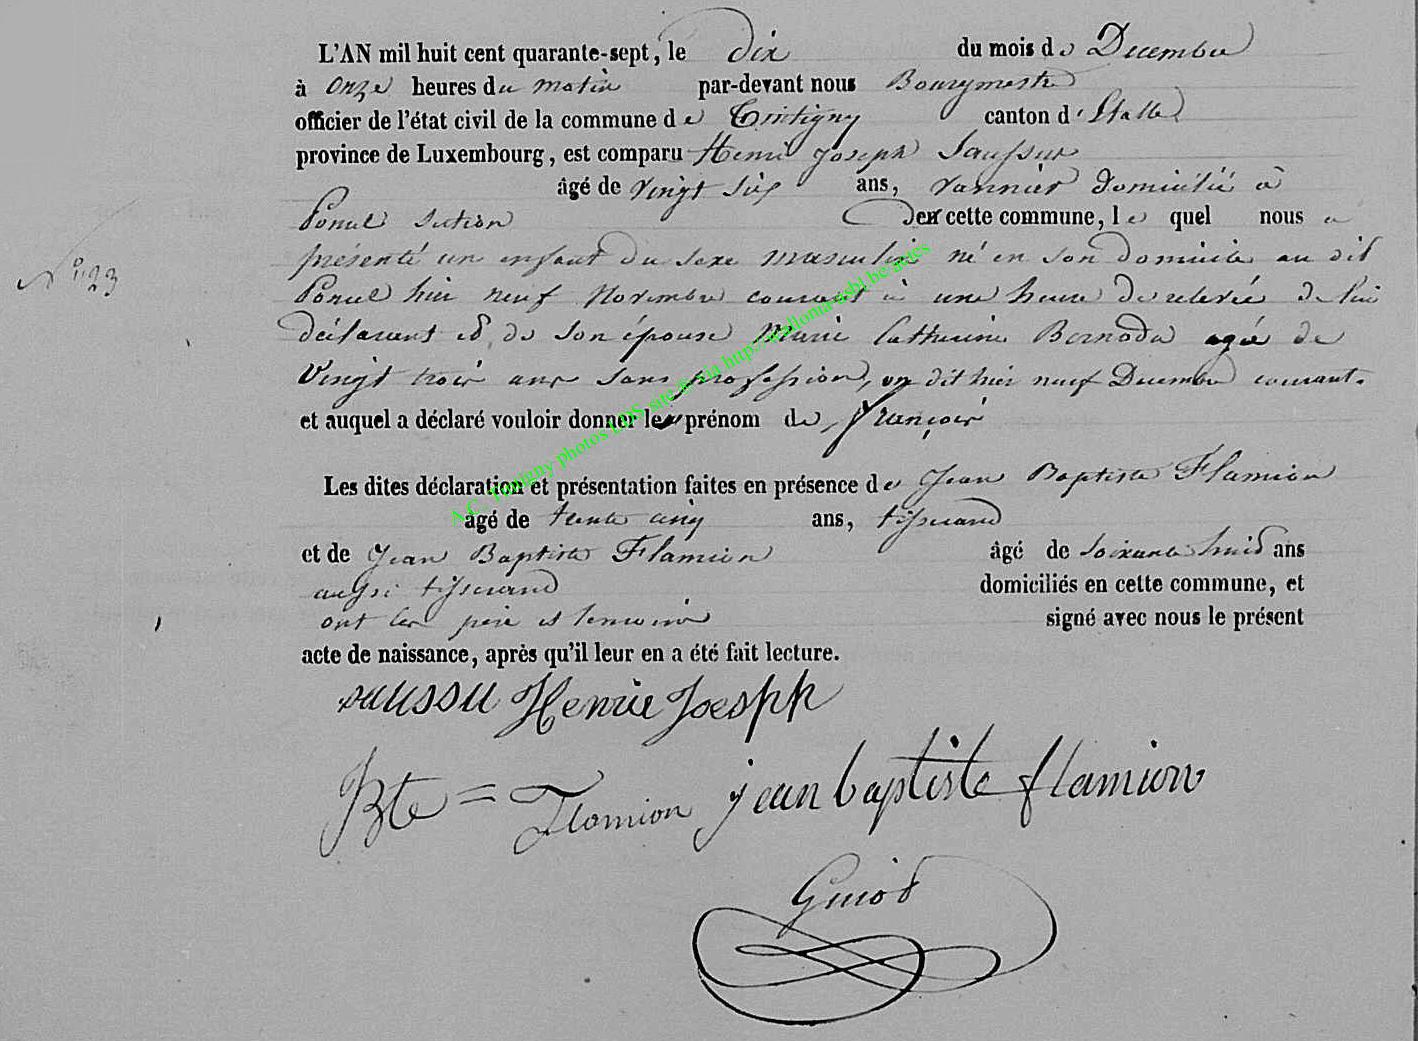 L'AN mil huit cent quarante-sept, le dix du mois de Decembre
à onze heures du matin par-devant nous Bourgmestre
officier de l'état civil de la commune de Tintigny canton d'Etalle
province de Luxembourg, est comparu Henri Joseph Saussus
âgé de vingt six ans, vannier domicilié à
Ponsel section de cette commune, le quel nous a
N° 23
présenté un enfant du sexe masculin né en son domicile au dit
Ponsel hier neuf Novembre courant à une heure de relevée de lui
déclarant et de son épouse Marie Catherine agée de
Vingt trois ans sans profession, on dit hier neuf Decembre courant.
et auquel a déclaré vouloir donner le prénom de François
Les dites déclaration et présentation faites en présence de Jean Baptiste Flamion
agé de trente cinq ans, tisserand
et de Jean Baptiste Flamion âgé de soixante huit ans
aussi tisserand domiciliés en cette commune, et
ont les père et temoins signé avec nous le présent
acte de naissance, après qu'il leur en a été fait lecture.
saussu Henrie Joespp
JBte = Flamion jean baptiste flamion
Guiot
A.C. Tintigny photos LDS site © via http://wallonia-asbl.be/actes